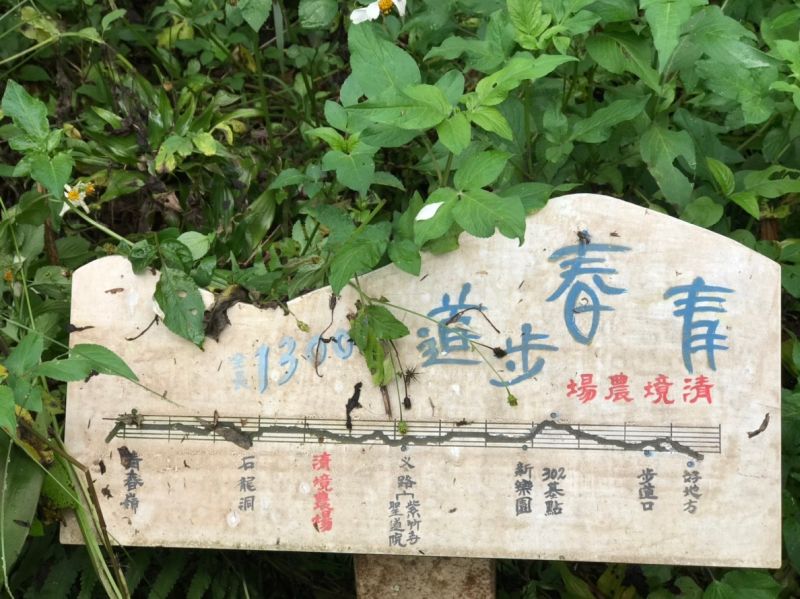 青春步道
清境農場
全長1300
好地方
步道口
302基點
新樂園
义路
紫竹寺
聖道院
清境農場
石龍洞
青春嶺